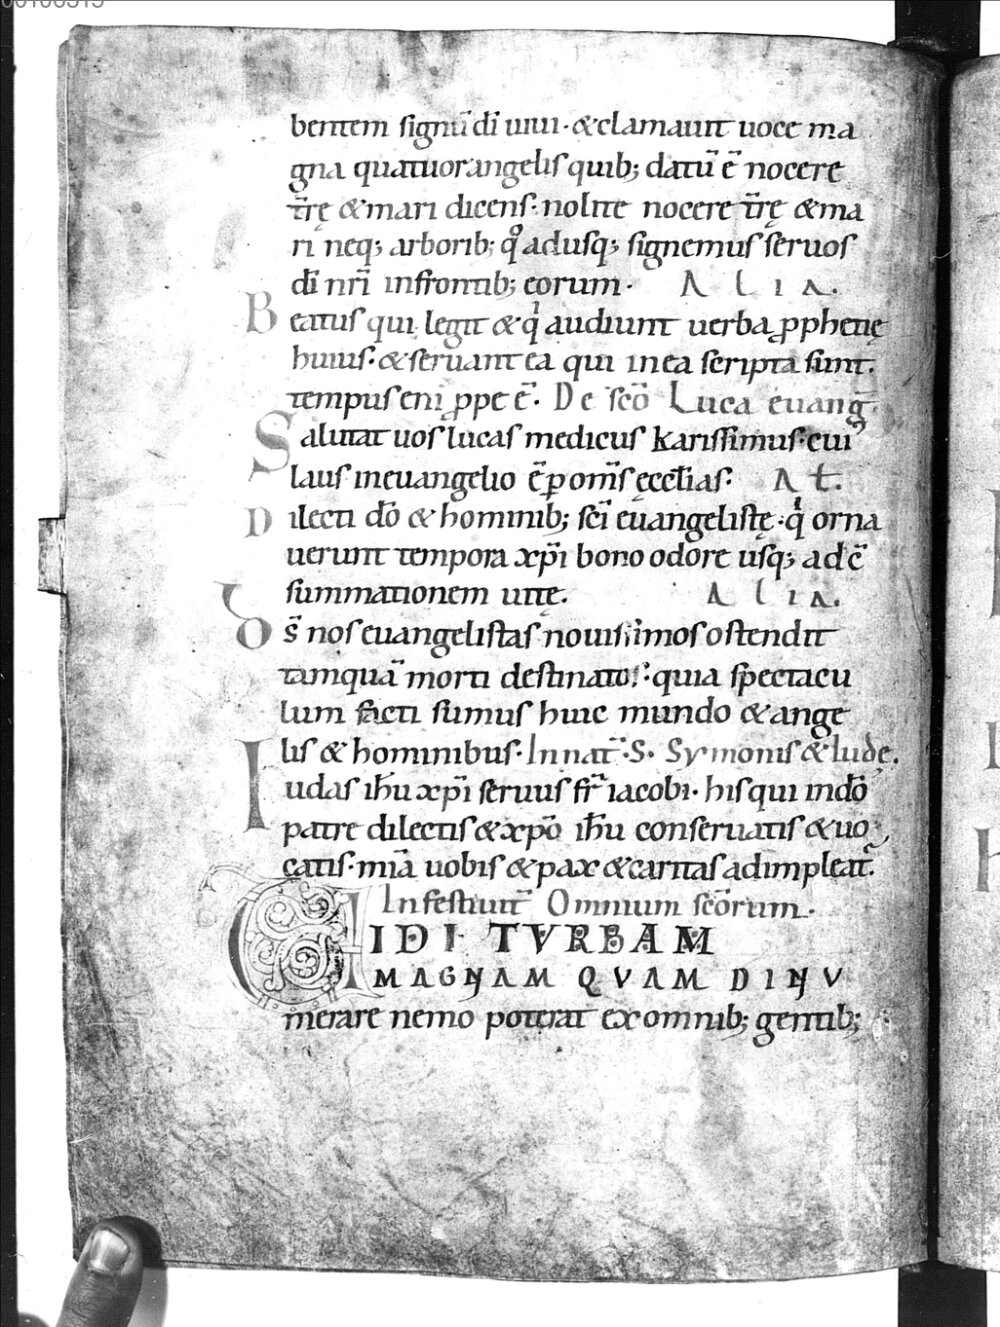 bentem signū dī uiui · & clamauit uoce ma
gna quatuor angelis quib; datū ē nocere
tr̄ę & mari dicens · nolite nocere tr̄ę & ma
ri neq; arborib; qͦadusq; signemus seruos
dī nr̄i infrontib; eorum · ALIA.
Beatus qui legit & qͥ audiunt uerba ꝓphetię
huius · & seruant ea qui in ea scripta sunt.
tempus eni ꝓpe ē · De sc̄o Luca euanḡ.
Salutat uos lucas medicus karissimus · cui
laus ineuangelio ē ꝑ om̄s ęcclias · At.
Dilecti dō & hominib; sc̄i euangelistę · qͥ orna
uerunt tempora xp̄i bono odore usq; ad c̄
summationem uitę. ALIA.
Ds̄ nos euangelistas nouissimos ostendit
tamquā morti destinatos · quia spectacu
lum facti sumus huic mundo & ange
lis & hominibus · In nat̄ · S · Symonis & Iudę.
Iudas ih̄u xp̄i seruus fr̄ iacobi · his qui in dō
patre dilectis & xp̄o ih̄u conseruatis & uo
catis · mīa uobis & pax & caritas adimpleat̄.
In festiuit̄ Omnium sc̄orum.
VIDI TVRBAM
MAGNAM QVAM DINV
merare nemo poterat ex omnib; gentib;